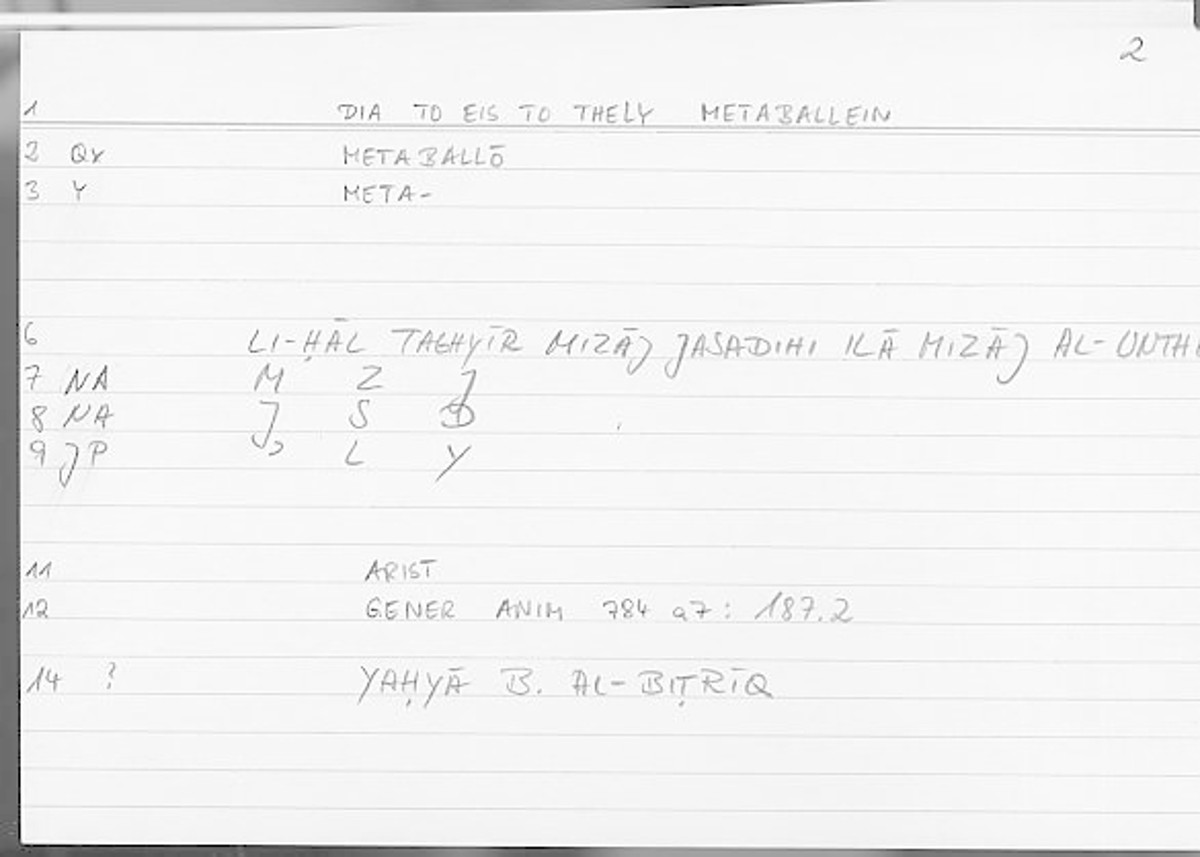 2
1 DIA TO EIS TO THELY METABALLEIN
2 Qv METABALLŌ
3 Y META-
6 LI-ḤĀL TAGHYĪR MIZĀJ JASADIHI ILĀ MIZĀJ AL-UNTH
7 NA M Z J
8 NA J S D
9 JP L Y
11 ARIST
12 GENER ANIM 784 a7: 187.2
14 ? YAḤYĀ B. AL-BIṬRĪQ